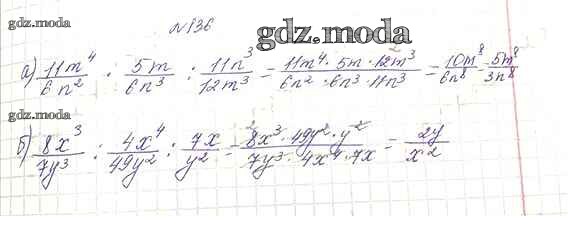 gdz.moda
№136
gdz.moda
а) 11m⁴/6n² · 5m/6n³ : 11n³/12m³ = 11m⁴ · 5m · 12m³/6n² · 6n³ · 11n³ = 10m⁸/6n⁸ = 5m⁸/3n⁸
gdz.moda
б) 8x³/7y³ : 4x⁴/49y² : 7x/y² = 8x³ · 49y² · y²/7y³ · 4x⁴ · 7x = 2y/x²
gdz.moda